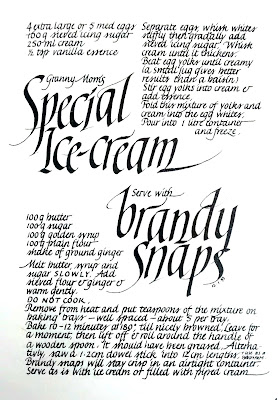 4 extra large or 5 med eggs
100g sieved icing sugar
250 ml cream
½ tsp vanilla essence
Separate eggs, whisk whites
stiffly then gradually add
sieved icing sugar. Whisk
cream until it thickens.
Beat egg yolks until creamy
(a small jug gives better
results than a basin)
Stir egg yolks into cream &
add essence.
Fold this mixture of yolks and
cream into the egg whites.
Pour into 1 litre container
and freeze.
Granny Mom's
Special
Ice-cream
Serve with
brandy
snaps
100g butter
100g sugar
100g golden syrup
100g plain flour
shake of ground ginger
Melt butter, syrup and
sugar SLOWLY. Add
sieved flour & ginger &
warm gently.
DO NOT COOK.
Remove from heat and put teaspoons of the mixture on
baking trays - well spaced - about 5 per tray.
Bake 10-12 minutes at 180°, till nicely browned. Leave for
a moment, then lift off & roll around the handle of
a wooden spoon. It should have been greased. Alterna-
tively, saw a 1.2cm dowel stick into 12 cm lengths.
Brandy snaps will stay crisp in an airtight container.
Serve as is with ice cream or filled with piped cream.